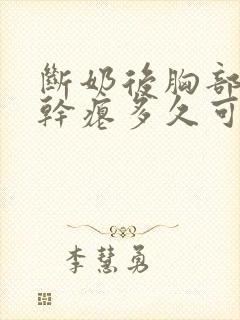 斷奶後胸部
幹瘪多久可
李慧勇